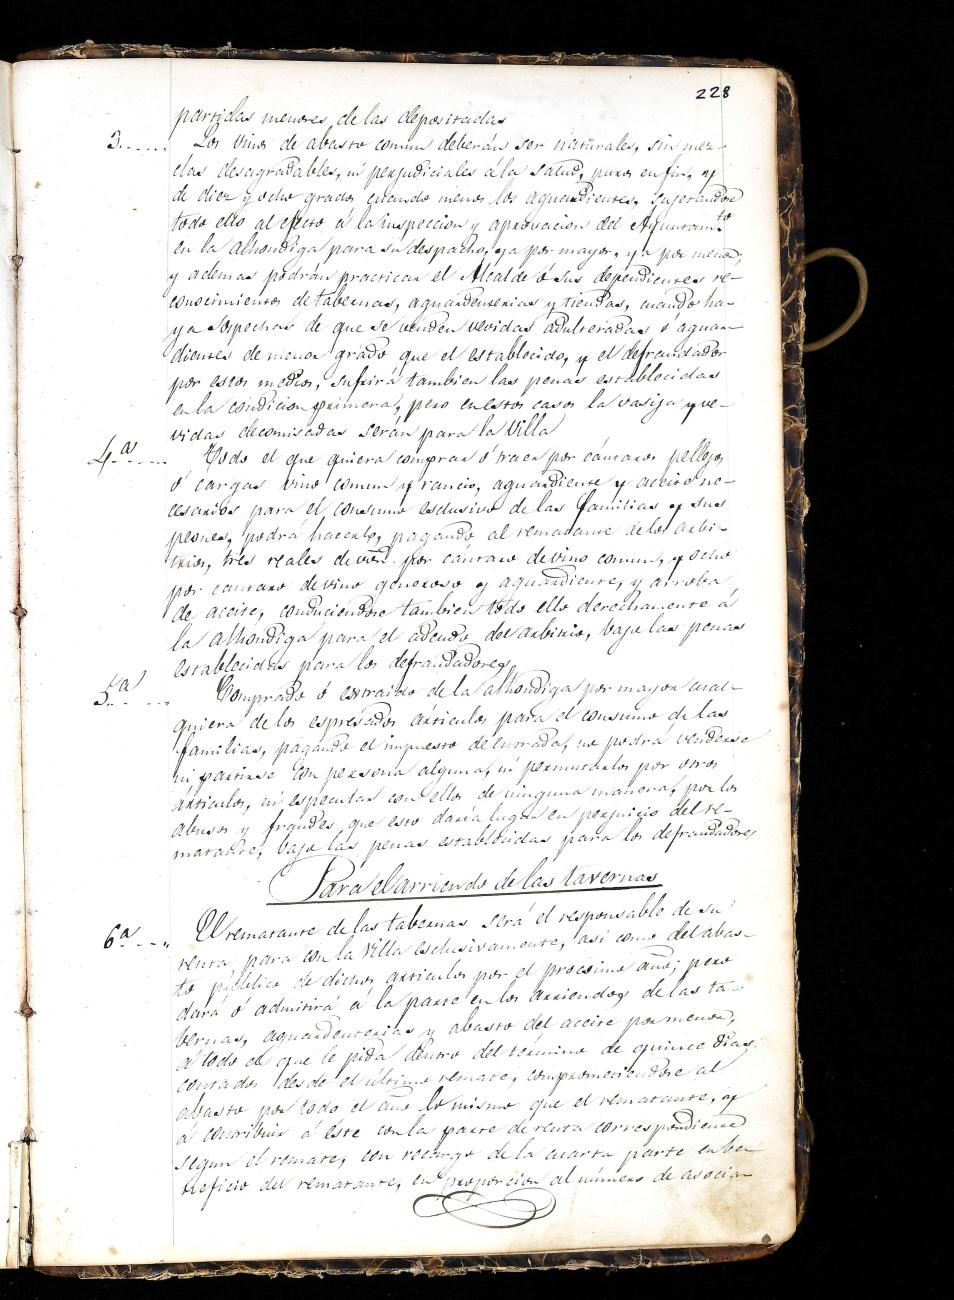 228
partidas menores de las depositadas
3.... Los vinos de abasto comun deberán ser naturales, sin mez-
clas desagradables, ni perjudiciales á la salud, puros en fin, y
de diez y ocho grados cuando menos los aguardientes, sujetandose
todo ello al efecto á la inspeccion y aprovacion del Ayuntam.to
en la alhondiga para su despacho, ya por mayor, ya por menor,
y ademas podrán practicar el Alcalde ó sus dependientes re-
conocimientos de tabernas, aguardenterias y tiendas, cuando ha-
ya sospechas de que se venden vevidas adulteradas ó aguar-
dientes de menor grado que el establecido, y el defraudador
por estos medios, sufrirá tambien las penas establecidas
en la condicion primera, pero en estos casos la vasija y ve-
vidas decomisadas serán para la Villa
4.a.... Todo el que quiera comprar ó traer por cántaros pellejos
ó cargas vino comun y rancio, aguardiente y aceite ne-
cesarios para el consumo esclusivo de las familias y sus
peones, podrá hacerlo, pagando al rematante de los arbi-
trios, trés reales de von. por cántaro de vino comun, y ocho
por cantaro de vino generoso y aguardiente, y arroba
de aceite, conduciendose tambien todo ello derechamente á
la alhondiga para el adeudo del arbitrio, bajo las penas
establecidas para los defraudadores
5.a.... Comprado ó extraido de la alhondiga por mayor cual-
quiera de los espresados articulos para el consumo de las
familias, pagando el impuesto de entrada, no podrá venderse
ni partirse con persona alguna, ni permutarlos por otros
árticulos, ni especular con ellos de ninguna manera, por los
abusos y fraudes que esto daria lugar en perjuicio del re-
matante, bajo las penas establecidas para los defraudadores
Para el arriendo de las tavernas
6.a.... El rematante de las tabernas será el responsable de su
renta para con la Villa esclusivamente, asi como del abas-
to público de dichos articulos por el procsimo año; pero
dará ó admitirá á la parte en los arriendos de las ta-
bernas, aguardenterias y abasto del aceite por menor,
á todo el que le pida dentro del término de quince dias
contados desde el último remate, comprometiendose al
abasto por todo el año lo mismo que el rematante, y
á contribuir á éste con la parte de renta correspondiente
segun el remate, con recargo de la cuarta parte en be-
neficio del rematante, en proporcion al número de asocia-